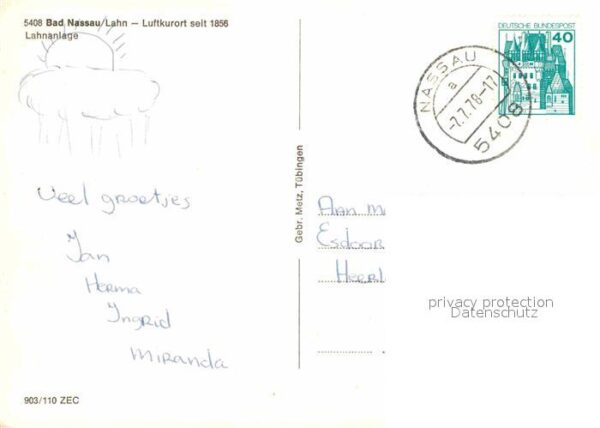 5408 Bad Nassau/Lahn — Luftkurort seit 1856
Lahnanlage
DEUTSCHE BUNDESPOST
40
NASSAU
a
-7.7.78-17
5408
Veel groetjes
Jan
Herma
Ingrid
Miranda
Gebr. Metz, Tübingen
Aan
Esdoor
Heerl
privacy protection
Datenschutz
903/110 ZEC